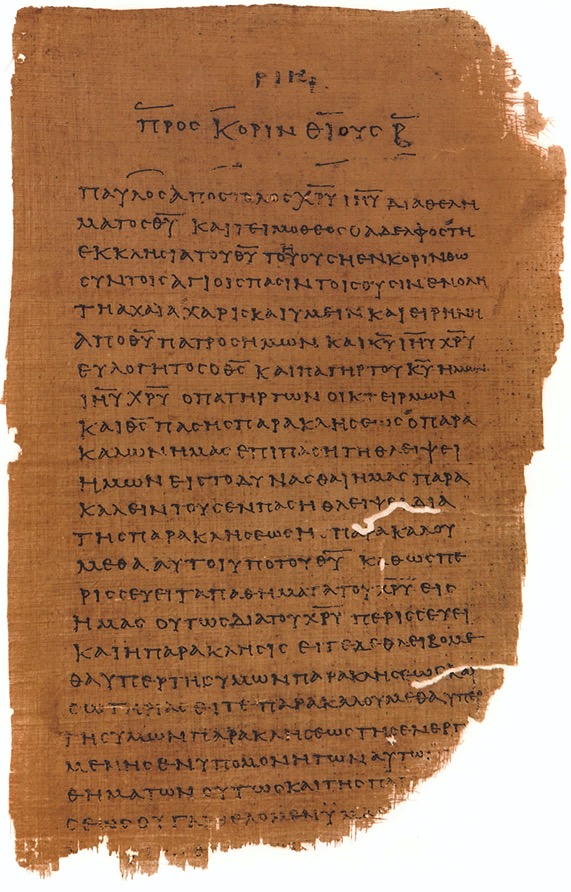 ΡΙΗ
ΠΡΟϹ ΚΟΡΙΝΘΙΟΥϹ Β̅
ΠΑΥΛΟϹΑΠΟϹΤΟΛΟϹΧ̅Ρ̅Υ̅ Ι̅Η̅Υ̅ ΔΙΑΘΕΛΗ
ΜΑΤΟϹΘ̅Υ̅ ΚΑΙΤΕΙΜΟΘΕΟϹΟΑΔΕΛΦΟϹΤΗ
ΕΚΚΛΗϹΙΑΤΟΥΘ̅Υ̅ ΤΗΟΥϹΗΕΝΚΟΡΙΝΘΩ
ϹΥΝΤΟΙϹΑΓΙΟΙϹΠΑϹΙΝΤΟΙϹΟΥϹΙΝΕΝΟΛΗ
ΤΗΑΧΑΙΑΧΑΡΙϹΚΑΙΥΜΕΙΝΚΑΙΕΙΡΗΝΗ
ΑΠΟΘ̅Υ̅ΠΑΤΡΟϹΗΜΩΝ ΚΑΙΚ̅Υ̅ Ι̅Η̅Υ̅ Χ̅Ρ̅Υ̅
ΕΥΛΟΓΗΤΟϹΟΘ̅Ϲ̅ ΚΑΙΠΑΤΗΡΤΟΥΚ̅Υ̅ ΗΜΩΝ
Ι̅Η̅Υ̅ Χ̅Ρ̅Υ̅ ΟΠΑΤΗΡΤΩΝ ΟΙΚΤΕΙΡΜΩΝ
ΚΑΙΘ̅Ϲ̅ ΠΑϹΗϹΠΑΡΑΚΛΗϹΕΩϹΟΠΑΡΑ
ΚΑΛΩΝΗΜΑϹ ΕΠΙΠΑϹΗΤΗΘΛΕΙΨΕΙ
ΗΜΩΝ ΕΙϹΤΟΔΥΝΑϹΘΑΙΗΜΑϹ ΠΑΡΑ
ΚΑΛΕΙΝΤΟΥϹΕΝΠΑϹΗΘΛΕΙΨΕΙΔΙΑ
ΤΗϹΠΑΡΑΚΛΗϹΕΩϹΗ ΠΑΡΑΚΑΛΟΥ
ΜΕΘΑ ΑΥΤΟΙΥΠΟΤΟΥΘ̅Υ̅ ΚΑΘΩϹΠΕ
ΡΙϹϹΕΥΕΙΤΑΠΑΘΗΜΑΤΑΤΟΥΧ̅Ρ̅Υ̅ ΕΙϹ
ΗΜΑϹ ΟΥΤΩϹΔΙΑΤΟΥΧ̅Ρ̅Υ̅ ΠΕΡΙϹϹΕΥΕΙ
ΚΑΙΗΠΑΡΑΚΛΗϹΙϹ ΕΙΤΕΔΕΘΛΕΙΒΟΜΕ
ΘΑΥΠΕΡΤΗϹΥΜΩΝΠΑΡΑΚΛΗϹΕΩϹΚΑΙ
ϹΩΤΗΡΙΑϹ ΕΙΤΕ ΠΑΡΑΚΑΛΟΥΜΕΘΑΥΠΕΡ
ΤΗϹΥΜΩΝΠΑΡΑΚΛΗϹΕΩϹΤΗϹΕΝΕΡΓ
ΜΕΝΗϹΕΝΥΠΟΜΟΝΗΤΩΝΑΥΤΩ
ΘΗΜΑΤΩΝ